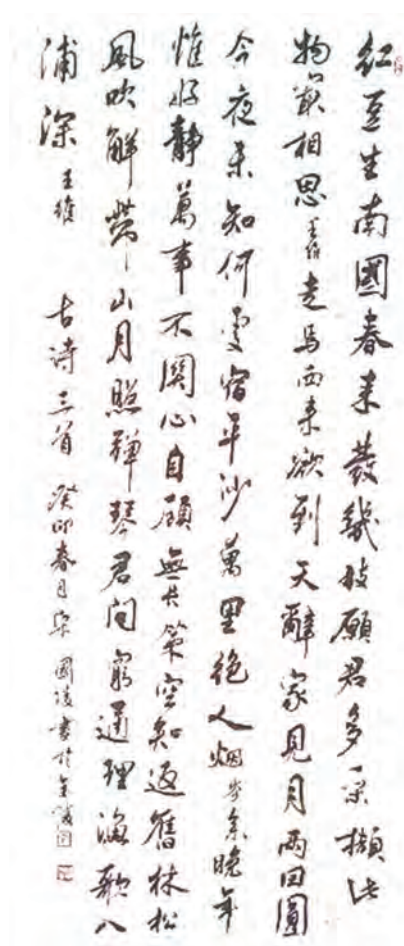 紅豆生南國春来發幾枝願君多采擷此
物最相思王維走馬西来欲到天辭家見月兩回圓
今夜未知何處宿平沙萬里絶人烟岑參晚年
惟好靜萬事不關心自顧無長策空知返舊林松
風吹解帶山月照彈琴君問窮通理漁歌入
浦深王維 古詩三首 癸卯春月 國 書於金城